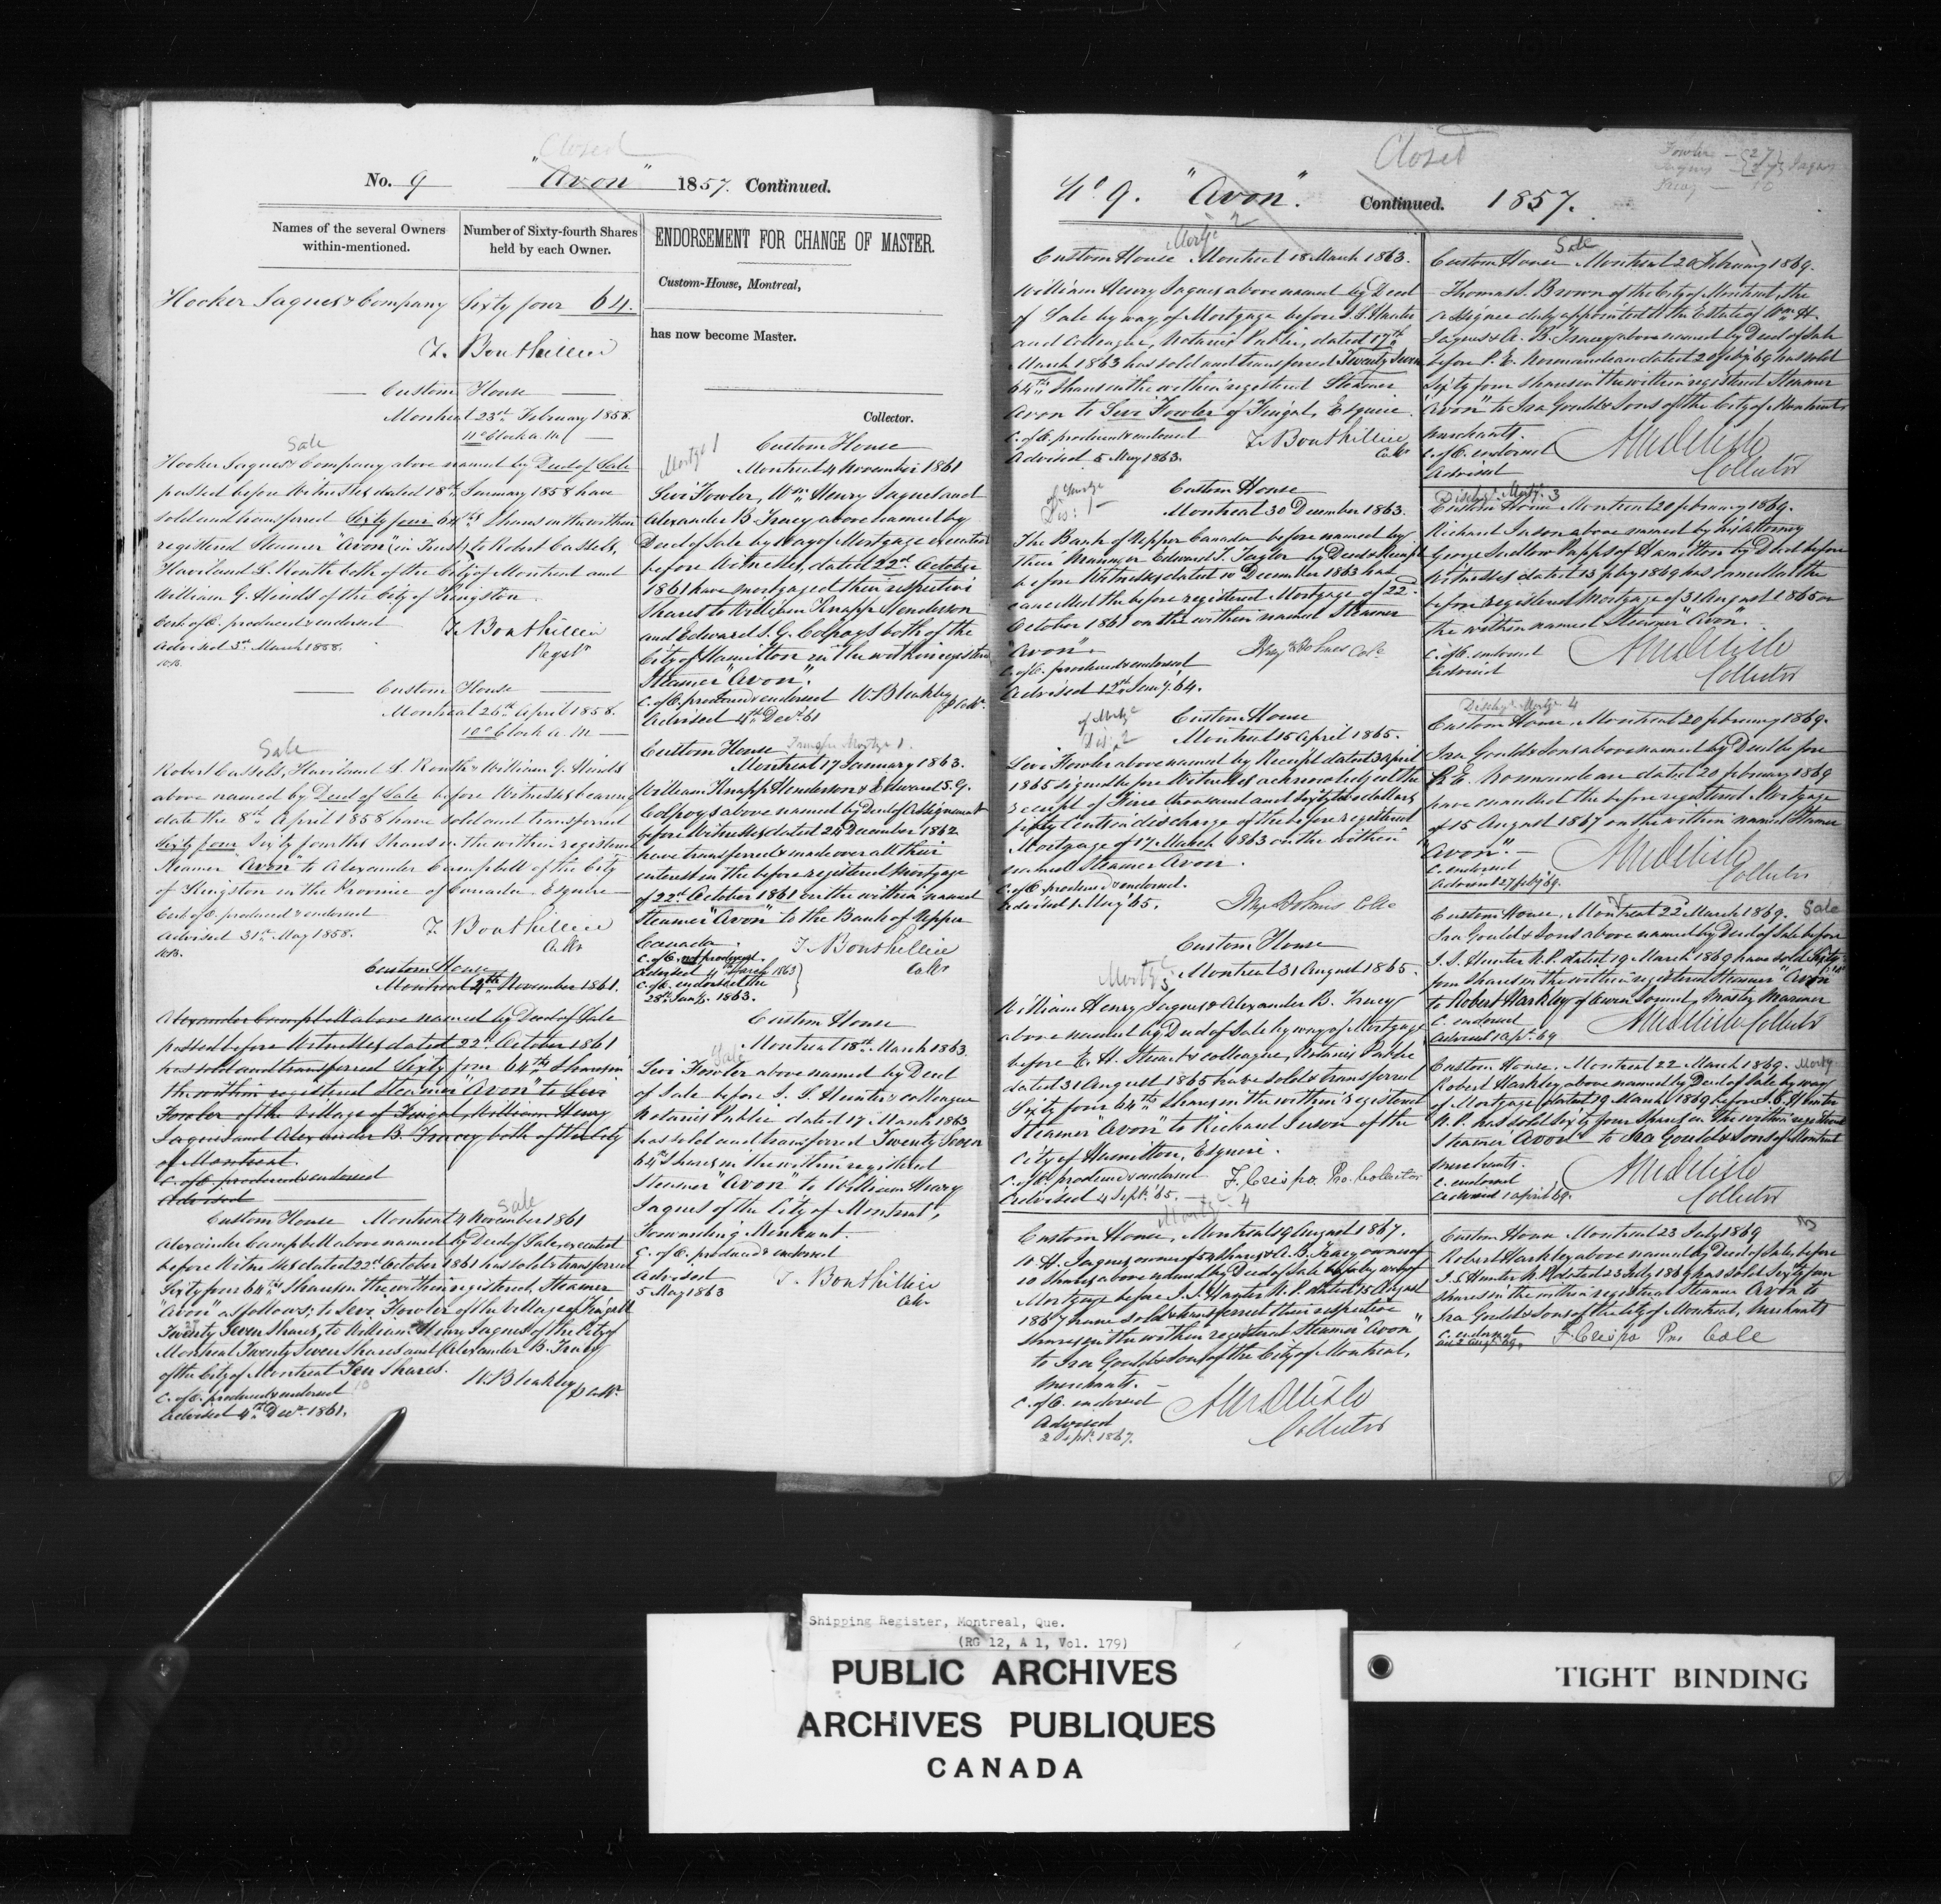 Closed
No. 9 "Avon" 1857. Continued.
Names of the several Owners
within-mentioned.
Number of Sixty-fourth Shares
held by each Owner.
Hooker Jaques & Company Sixty four 64.
T. Bouthillier
Custom House
Montreal 23rd February 1858.
11 o'Clock a.m.
Sale
Hooker Jaques & Company above named by Deed of Sale
passed before Witnesses dated 18th January 1858 have
sold and transferred Sixty four 64ths Shares in the within
registered Steamer "Avon" (in Trust) to Robert Cassels,
Haviland L. Routh both of the City of Montreal and
William G. Hinds of the City of Kingston.
Cert. of O. produced & endorsed T. Bouthillier
Advised 3rd March 1858. Regstr
Custom House
Montreal 26th April 1858.
10 o'Clock a.m.
Sale
Robert Cassels, Haviland L. Routh & William G. Hinds
above named by Deed of Sale before Witnesses bearing
date the 8th April 1858 have sold and transferred
Sixty four Sixty fourths Shares in the within registered
Steamer "Avon" to Alexander Campbell of the City
of Kingston in the Province of Canada Esquire
Cert. of O. produced & endorsed
Advised 31st May 1858. T. Bouthillier
Collr
Custom House
Montreal 4th November 1861.
Alexander Campbell above named by Deed of Sale
passed before Witnesses dated 22d October 1861
has sold and transferred Sixty four 64ths Shares in
the within registered Steamer "Avon" to Levi
Fowler of the Village of Fingal, William Henry
Jaques and Alexander B. Tracy both of the City
of Montreal.
C. of O. produced & endorsed
Advised
Sale
Custom House Montreal 4 November 1861
Alexander Campbell above named by Deed of Sale, executed
before Witnesses dated 22d October 1861 has sold & transferred
Sixty four 64ths Shares in the within registered Steamer
"Avon" as follows; to Levi Fowler of the Village of Fingall
Twenty Seven Shares, to William Henry Jaques of the City of
Montreal Twenty Seven Shares and Alexander B. Tracy
of the City of Montreal Ten Shares.
C. of O. produced & endorsed 10 W. Bleakley
Advised 4th Decr. 1861. p Collr
ENDORSEMENT FOR CHANGE OF MASTER.
Custom-House, Montreal,
has now become Master.
Collector.
Mortge 1
Custom House
Montreal 4 November 1861
Levi Fowler, Wm. Henry Jaques and
Alexander B. Tracy above named by
Deed of Sale by Way of Mortgage executed
before Witnesses, dated 22d October
1861 have mortgaged their respective
Shares to William Knapp Henderson
and Edward S. G. Colpoys both of the
City of Hamilton in the within registered
Steamer "Avon".
C. of O. produced & endorsed W. Bleakley
Advised 4th Decr. 61 p Collr.
Custom House Transfer Mortge 1.
Montreal 17 January 1863.
William Knapp Henderson & Edward S. G.
Colpoys above named by Deed of Assignment
before Witnesses dated 24 December 1862
have transferred & made over all their
interest in the before registered Mortgage
of 22d October 1861 on the within named
Steamer "Avon" to the Bank of Upper
Canada. T. Bouthillier
C. of O. not produced. Collr
Advised 11th March 1863
C. of O. endorsed the
28th Jany. 1863.
Custom House
Montreal 18th March 1863.
Sale
Levi Fowler above named by Deed
of Sale before J. S. Hunter & colleague
Notaries Public dated 17 March 1863
has sold and transferred Twenty Seven
64th Shares in the within registered
Steamer "Avon" to William Henry
Jaques of the City of Montreal,
Forwarding Merchant.
C. of O. produced & endorsed
Advised T. Bouthillier
5 May 1863 Collr
Closed
Fowler — 27
Jaques — 27 Jaques
Tracy — 10
No. 9. "Avon". Continued. 1857.
Mortge 2
Custom House Montreal 18 March 1863.
William Henry Jaques above named by Deed
of Sale by way of Mortgage before J. S. Hunter
and Colleague, Notaries Public, dated 17th
March 1863 has sold and transferred Twenty Seven
64ths Shares in the within registered Steamer
Avon to Levi Fowler of Fingal, Esquire.
C. of O. produced & endorsed T. Bouthillier
Advised 5 May 1863. Collr
Dis: of Mortge 1
Custom House
Montreal 30 December 1863.
The Bank of Upper Canada before named by
their Manager Edward T. Taylor by Deed & Receipt
before Witnesses dated 10 December 1863 has
cancelled the before registered Mortgage of 22
October 1861 on the within named Steamer
"Avon".
C. of O. produced & endorsed Benj Holmes Colr
Advised 12th Jany. 64.
Dis: of Mortge 2
Custom House
Montreal 15 April 1865.
Levi Fowler above named by Receipt dated 3 April
1865 signed before Witnesses acknowledges the
receipt of thousand and sixty two dollars
fifty Cents in discharge of the before registered
Mortgage of 17 March 1863 on the within
named Steamer Avon.
C. of O. produced & endorsed.
Advised 1 May 65. Benj Holmes Colle
Custom House
Mortge 3 Montreal 31 August 1865.
William Henry Jaques & Alexander B. Tracy
above named by Deed of Sale by way of Mortgage
before E. H. Stuart & colleague, Notaries Public
dated 31 August 1865 have sold & transferred
Sixty four 64ths Shares in the within registered
Steamer "Avon" to Richard Juson of the
City of Hamilton, Esquire.
C. of O. produced & endorsed F. Crispo Pro. Collector
Advised 4 Septr. 65.
Mortge 4
Custom House, Montreal 19 August 1867.
W. H. Jaques owner of 54 Shares & A. B. Tracy owner of
10 Shares above named by Deed of Sale by way of
Mortgage before J. S. Hunter N. P. dated 15 August
1867 have sold & transferred their respective
shares in the within registered Steamer "Avon"
to Ira Gould & Sons of the City of Montreal,
Merchants.
C. of O. endorsed
Advised
2 Septr. 1867. Collector
Sale
Custom House Montreal 20 February 1869.
Thomas S. Brown of the City of Montreal, the
Assignee duly appointed to the Estate of Wm. H.
Jaques & A. B. Tracy above named by Deed of Sale
before P. E. Normandeau dated 20 feby 69 has sold
Sixty four shares in the within registered Steamer
"Avon" to Ira Gould & Sons of the City of Montreal
Merchants.
C. of O. endorsed
Advised Collector
Dischge Mortge 3
Custom House Montreal 20 february 1869.
Richard Juson above named by his Attorney
George Sudlow Papps of Hamilton by Deed before
Witnesses dated 13 feby 1869 has cancelled the
before registered Mortgage of 31 August 1865 on
the within named Steamer "Avon".
C. of O. endorsed
Advised Collector
Dischge Mortge 4
Custom House, Montreal 20 february 1869.
Ira Gould & Sons above named by Deed before
P. E. Normandeau dated 20 february 1869
have cancelled the before registered Mortgage
of 15 August 1867 on the within named Steamer
"Avon".
C. endorsed
Advised 27 feby 69. Collector
Custom House, Montreal 22 March 1869. Sale
Ira Gould & Sons above named by Deed of Sale before
J. S. Hunter N. P. dated 19 March 1869 have sold Sixty
four Shares in the within registered Steamer "Avon"
to Robert Harkley of Owen Sound, Master Mariner
C. endorsed
Advised 1 Apl. 69 Collector
Custom House, Montreal 22 March 1869. Mortge
Robert Harkley above named by Deed of Sale by way
of Mortgage dated 19 March 1869 before J. S. Hunter
N. P. has sold Sixty four Shares in the within registered
Steamer "Avon" to Ira Gould & Sons of Montreal
Merchants.
C. endorsed
Advised 1 April 69. Collector
Custom House Montreal 23 July 1869
Robert Harkley above named by Deed of Sale, before
J. S. Hunter N. P. dated 23 July 1869 has sold Sixty four
shares in the within registered Steamer Avon to
Ira Gould & Sons of the City of Montreal, Merchants
C. endorsed F. Crispo Pro Colle
Ad 2 Augt. 69.
Shipping Register, Montreal, Que.
(RG 12, A 1, Vol. 179)
PUBLIC ARCHIVES
ARCHIVES PUBLIQUES
CANADA
TIGHT BINDING